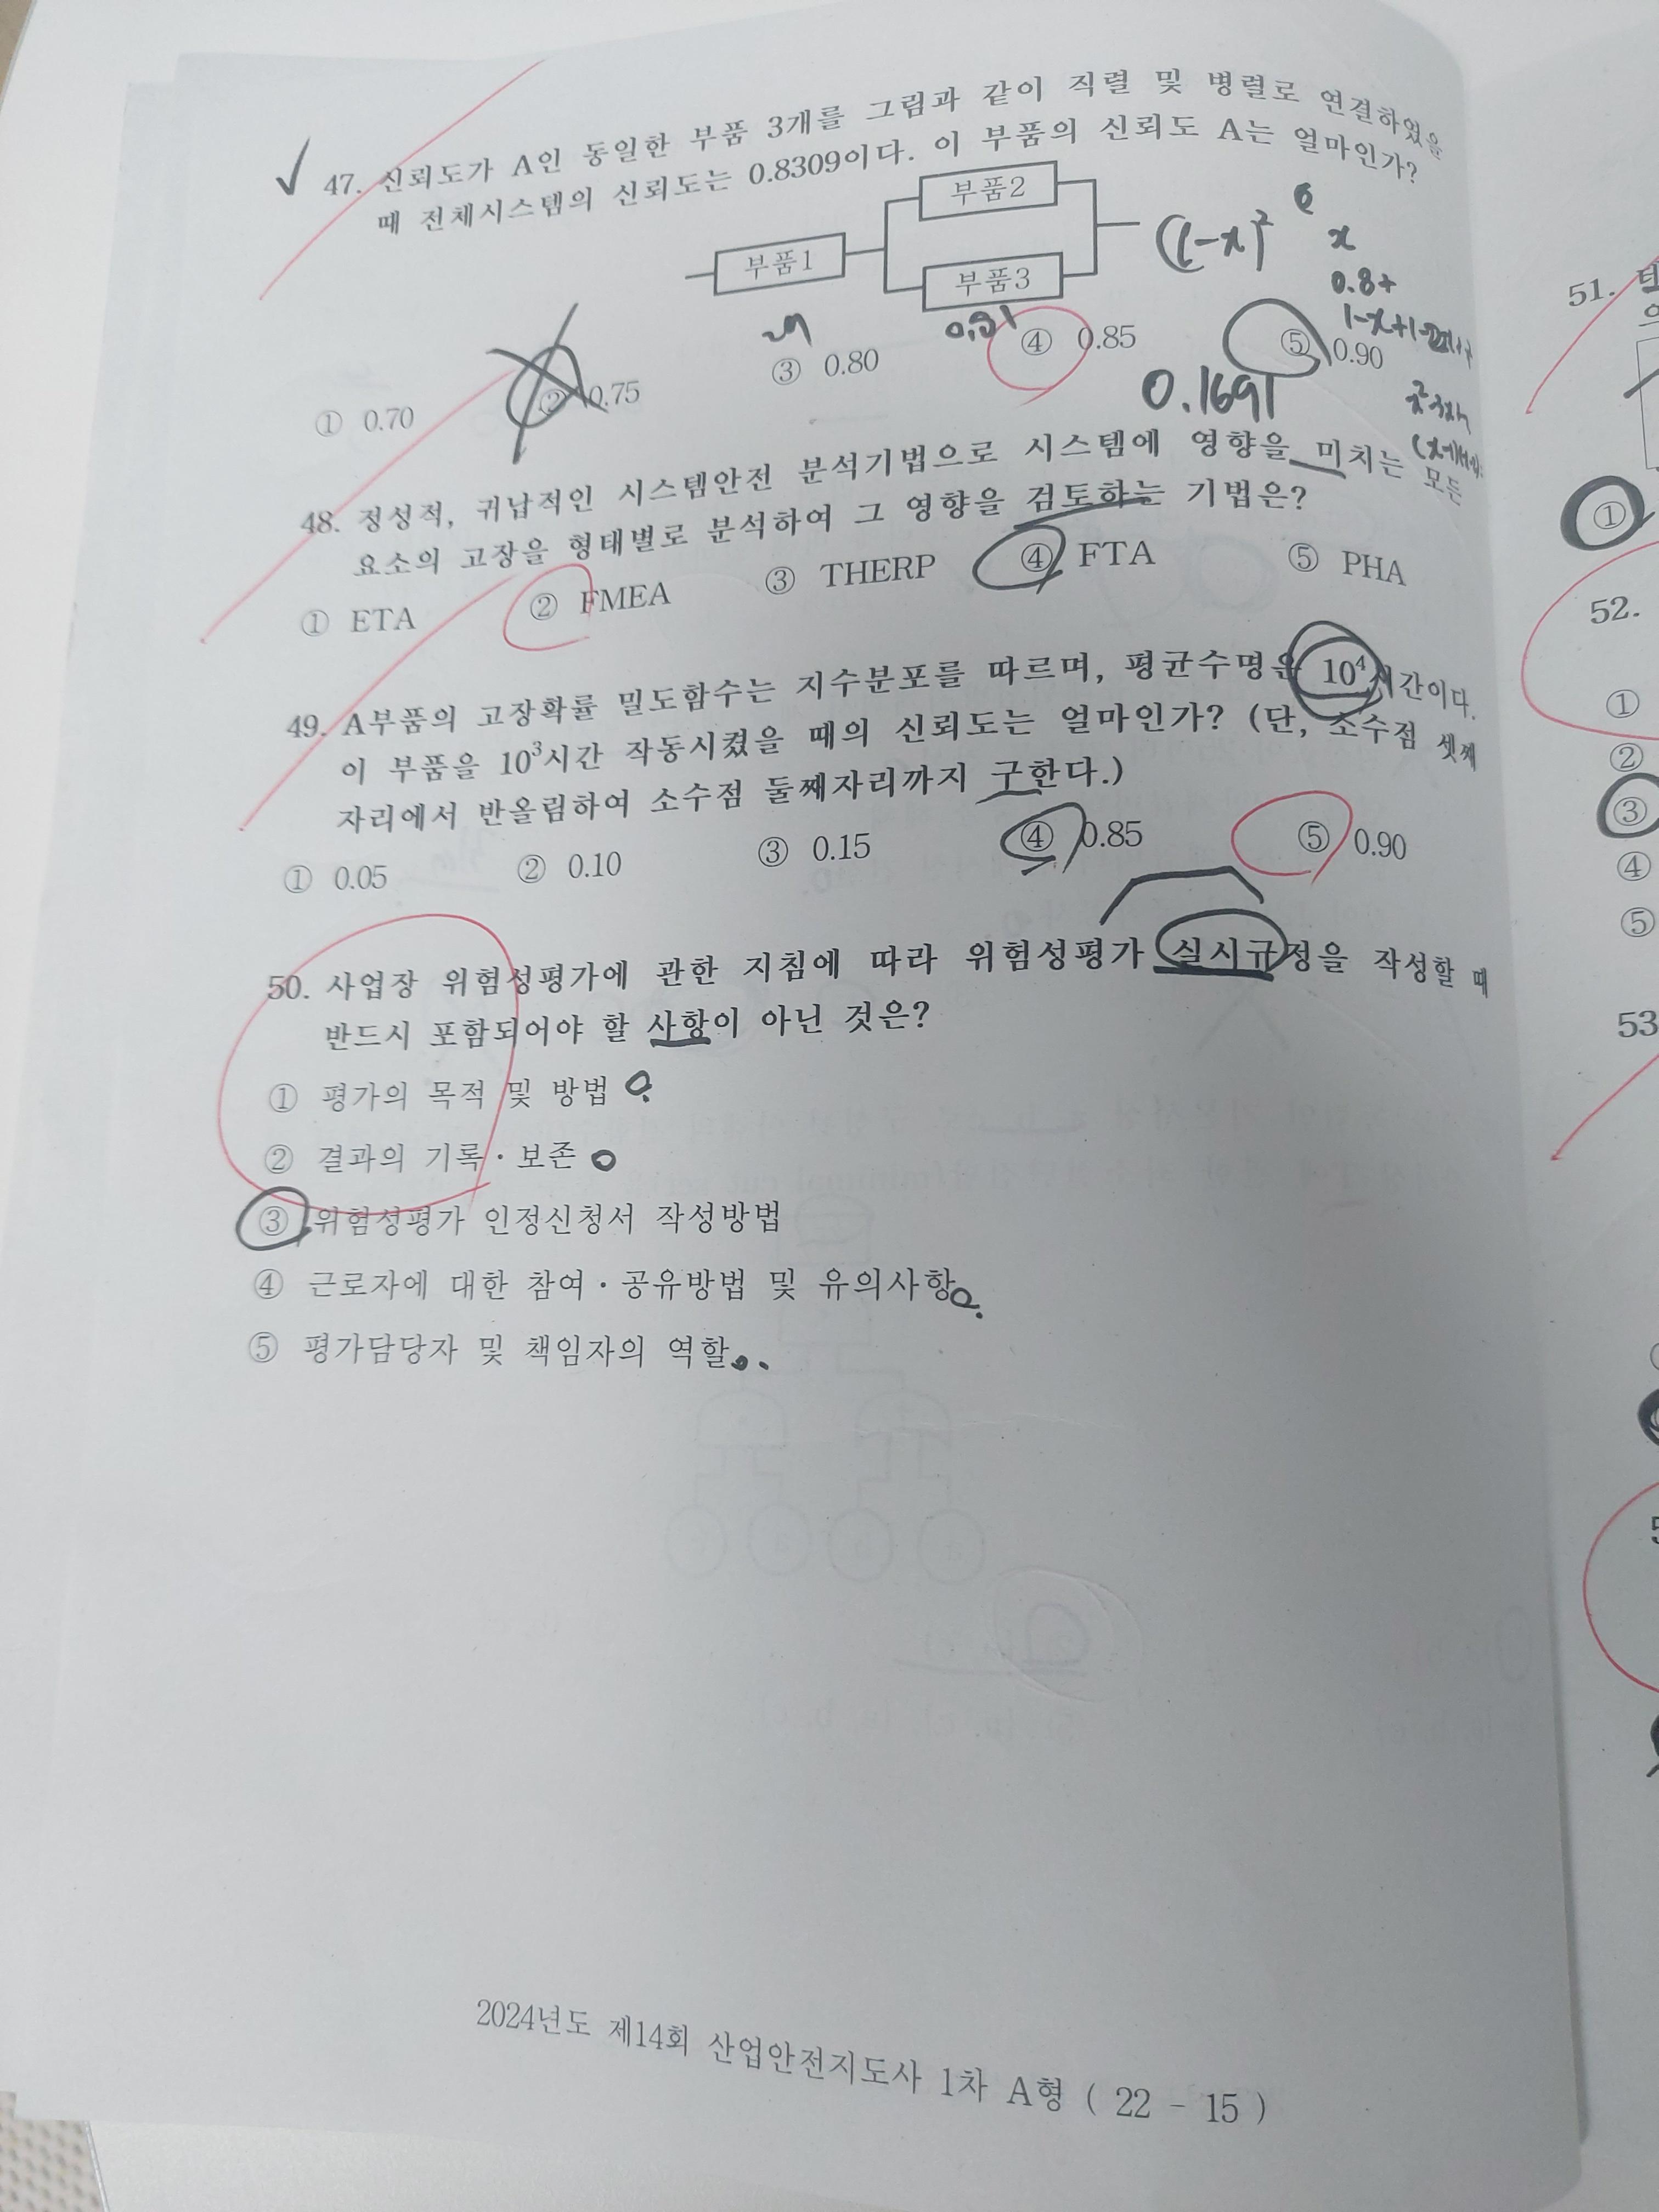 47. 신뢰도가 A인 동일한 부품 3개를 그림과 같이 직렬 및 병렬로 연결하였을
때 전체시스템의 신뢰도는 0.8309이다. 이 부품의 신뢰도 A는 얼마인가?
부품1
부품2
부품3
(1-x)²
x
0.8+
0.91
0.1691
① 0.70 ② 0.75 ③ 0.80 ④ 0.85 ⑤ 0.90
48. 정성적, 귀납적인 시스템안전 분석기법으로 시스템에 영향을 미치는 모든
요소의 고장을 형태별로 분석하여 그 영향을 검토하는 기법은?
① ETA ② FMEA ③ THERP ④ FTA ⑤ PHA
49. A부품의 고장확률 밀도함수는 지수분포를 따르며, 평균수명은 10⁴시간이다.
이 부품을 10³시간 작동시켰을 때의 신뢰도는 얼마인가? (단, 소수점 셋째
자리에서 반올림하여 소수점 둘째자리까지 구한다.)
① 0.05 ② 0.10 ③ 0.15 ④ 0.85 ⑤ 0.90
50. 사업장 위험성평가에 관한 지침에 따라 위험성평가 실시규정을 작성할 때
반드시 포함되어야 할 사항이 아닌 것은?
① 평가의 목적 및 방법
② 결과의 기록·보존
③ 위험성평가 인정신청서 작성방법
④ 근로자에 대한 참여·공유방법 및 유의사항
⑤ 평가담당자 및 책임자의 역할
2024년도 제14회 산업안전지도사 1차 A형 ( 22 - 15 )
51.
①
52.
①
②
③
④
⑤
53